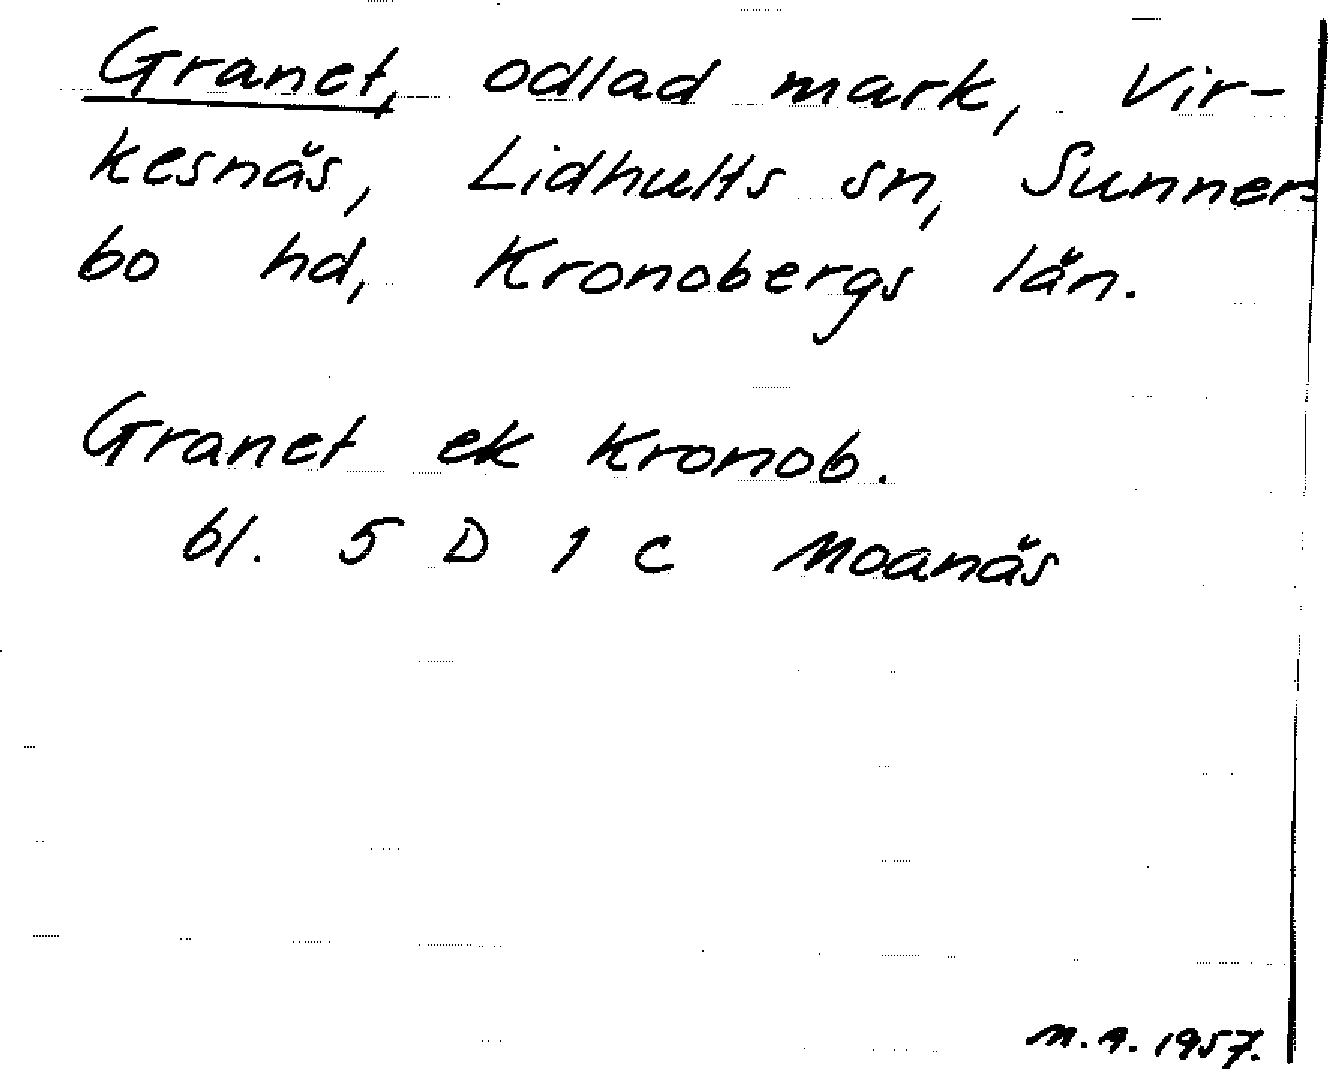 Granet, odlad mark, Vir-
kesnäs, Lidhults sn, Sunner-
bo hd, Kronobergs län.
Granet ek Kronob.
bl. 5 D 1 c Moanäs
n.a. 1957.